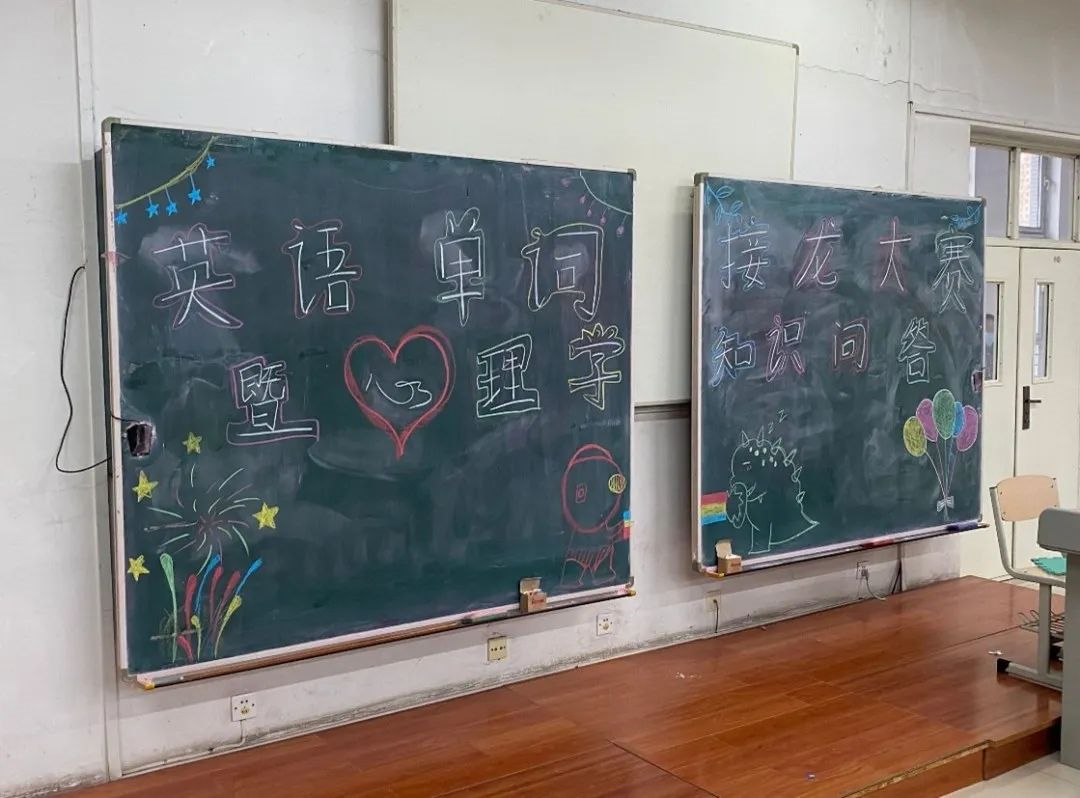 英语单词
暨心理学
接龙大赛
知识问答